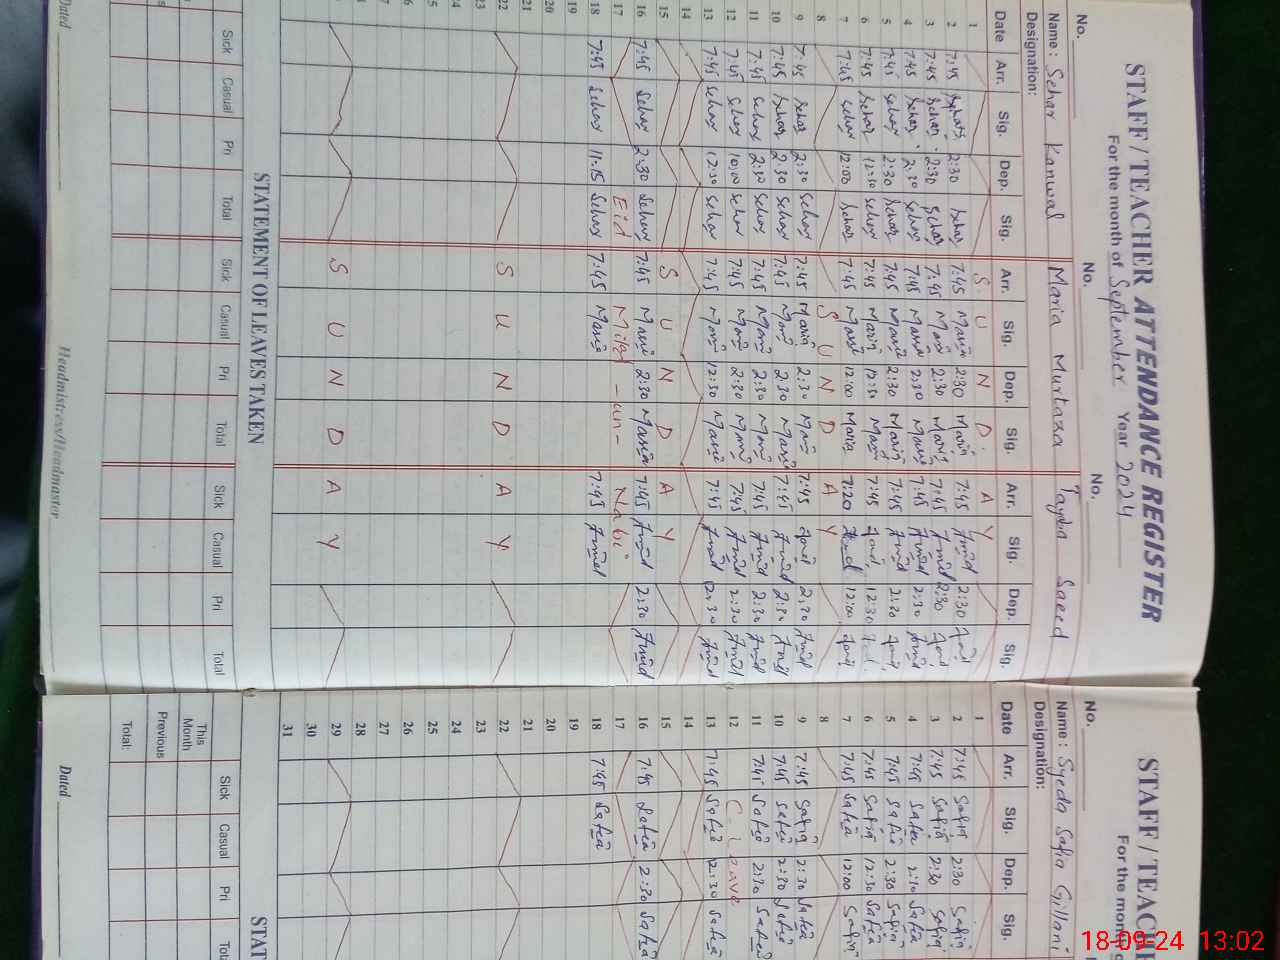 STAFF / TEACHER ATTENDANCE REGISTER
For the month of September Year 2024
No. No. No.
Name: Sehar Kanwal Maria Murtaza Tayba Saeed
Designation:
Date Arr. Sig. Dep. Sig. Arr. Sig. Dep. Sig. Arr. Sig. Dep. Sig.
1 S U N D A Y
2 7:45 Sehar 2:30 Sehar 7:45 Maria 2:30 Maria 7:45 2:30
3 7:45 Sehar 2:30 Sehar 7:45 Maria 2:30 Maria 7:45 2:30
4 7:45 Sehar 2:30 Sehar 7:45 Maria 2:30 Maria 7:45 2:30
5 7:45 Sehar 2:30 Sehar 7:45 Maria 2:30 Maria 7:45 2:30
6 7:45 Sehar 12:30 Sehar 7:45 Maria 12:30 Maria 7:45 12:30
7 7:45 Sehar 12:00 Sehar 7:45 Maria 12:00 Maria 7:20 12:00
8 S U N D A Y
9 7:45 Sehar 2:30 Sehar 7:45 Maria 2:30 Maria 7:45 2:30
10 7:45 Sehar 2:30 Sehar 7:45 Maria 2:30 Maria 7:45 2:30
11 7:45 Sehar 2:30 Sehar 7:45 Maria 2:30 Maria 7:45 2:30
12 7:45 Sehar 10:00 Sehar 7:45 Maria 2:30 Maria 7:45 2:30
13 7:45 Sehar 12:30 Sehar 7:45 Maria 12:30 Maria 7:45 12:30
14
15 S U N D A Y
16 7:45 Sehar 2:30 Sehar 7:45 Maria 2:30 Maria 7:45 2:30
17 Eid Milad-un-Nabi
18 7:45 Sehar 11:15 Sehar 7:45 Maria 7:45
19
20
21
22 S U N D A Y
23
S U N D A Y
STATEMENT OF LEAVES TAKEN
Sick Casual Pri Total Sick Casual Pri Total Sick Casual Pri Total
Dated Headmistress/Headmaster
STAFF / TEACH
For the mon
No.
Name: Syeda Safia Gillani
Designation:
Date Arr. Sig. Dep. Sig.
1
2 7:45 Safia 2:30 Safia
3 7:45 Safia 2:30 Safia
4 7:45 Safia 2:30 Safia
5 7:45 Safia 2:30 Safia
6 7:45 Safia 12:30 Safia
7 7:45 Safia 12:00 Safia
8
9 7:45 Safia 2:30 Safia
10 7:45 Safia 2:30 Safia
11 7:45 Safia 2:30 Safia
12 C leave
13 7:45 Safia 12:30 Safia
14
15
16 7:45 Safia 2:30 Safia
17
18 7:45 Safia
19
20
21
22
23
24
25
26
27
28
29
30
31
STAT
Sick Casual Pri Tot
This Month
Previous
Total:
Dated
18-09-24 13:02